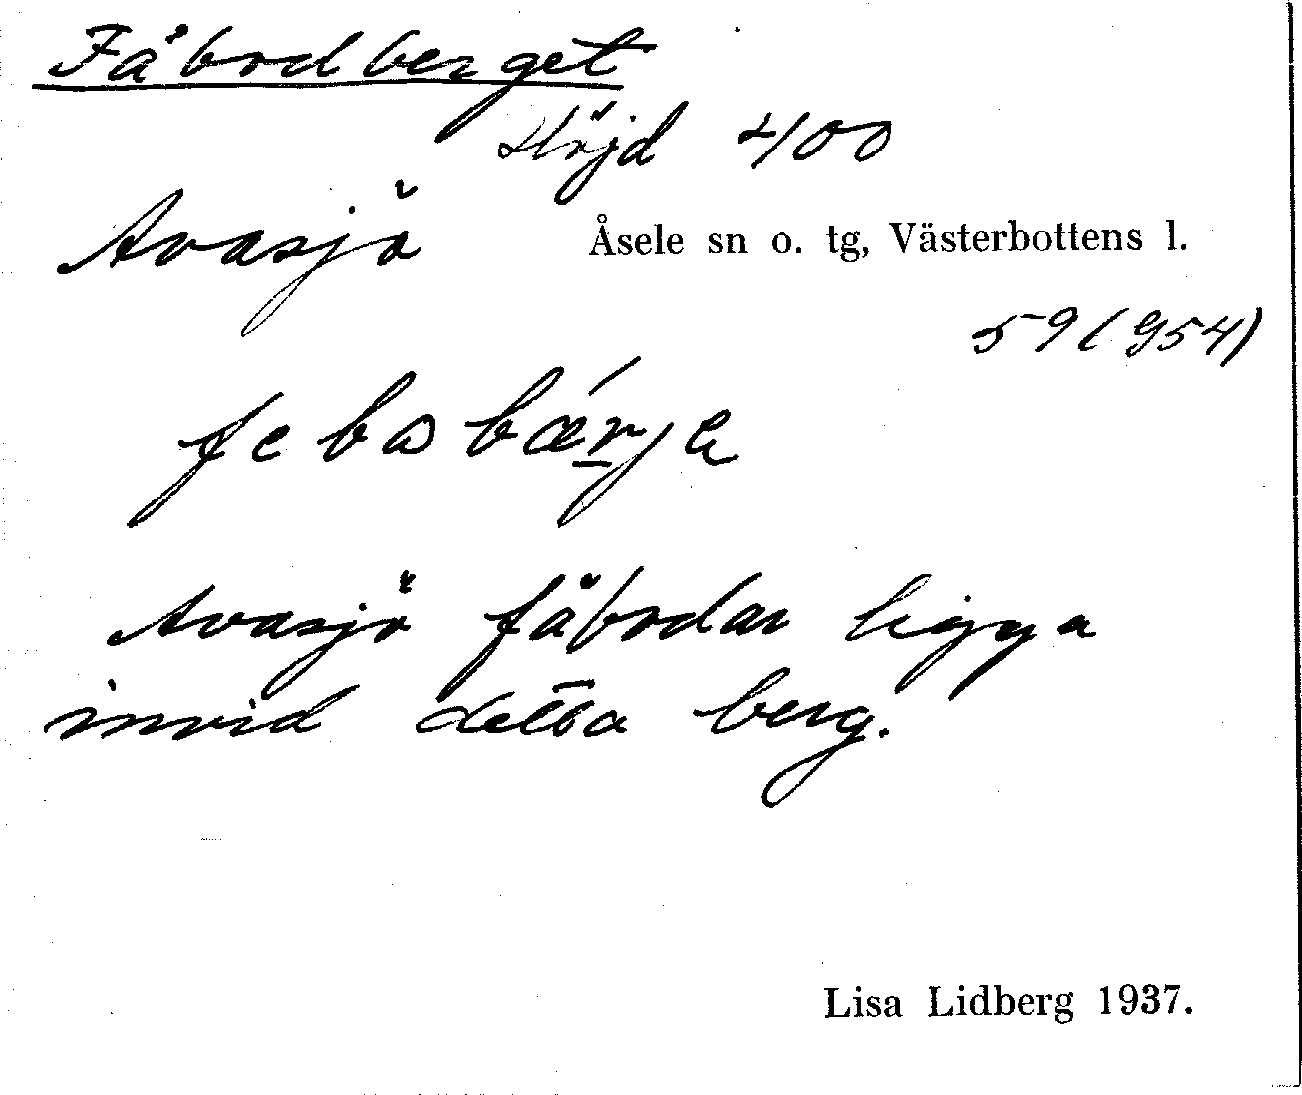 Fäbodberget
Höjd 400
Avasjö Åsele sn o. tg, Västerbottens l.
59 (954)
Avasjö fäbodar ligga
invid detta berg.
Lisa Lidberg 1937.